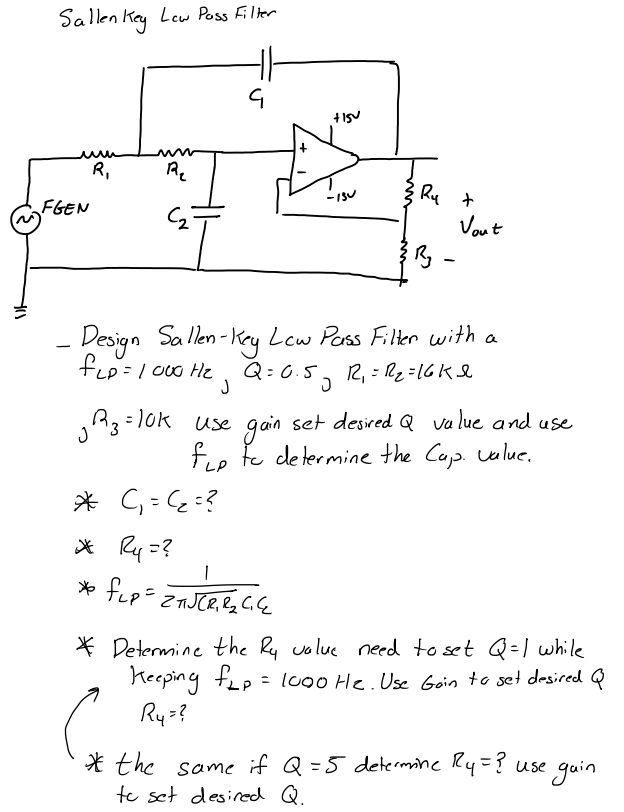 Sallen Key Low Pass Filter
C1
+15V
+
R1
R2
-
-15V
R4
+
FGEN
C2
Vout
R3 -
- Design Sallen-Key Low Pass Filter with a
fLP = 1000 Hz, Q = 0.5, R1 = R2 = 16KΩ
, R3 = 10K use gain set desired Q value and use
fLP to determine the Cap. value.
* C1 = C2 = ?
* R4 = ?
* fLP = 1 / 2π√(R1R2 C1C2
* Determine the R4 value need to set Q=1 while
Keeping fLP = 1000 Hz. Use Gain to set desired Q
R4 = ?
* the same if Q = 5 determine R4 = ? use gain
to set desired Q.